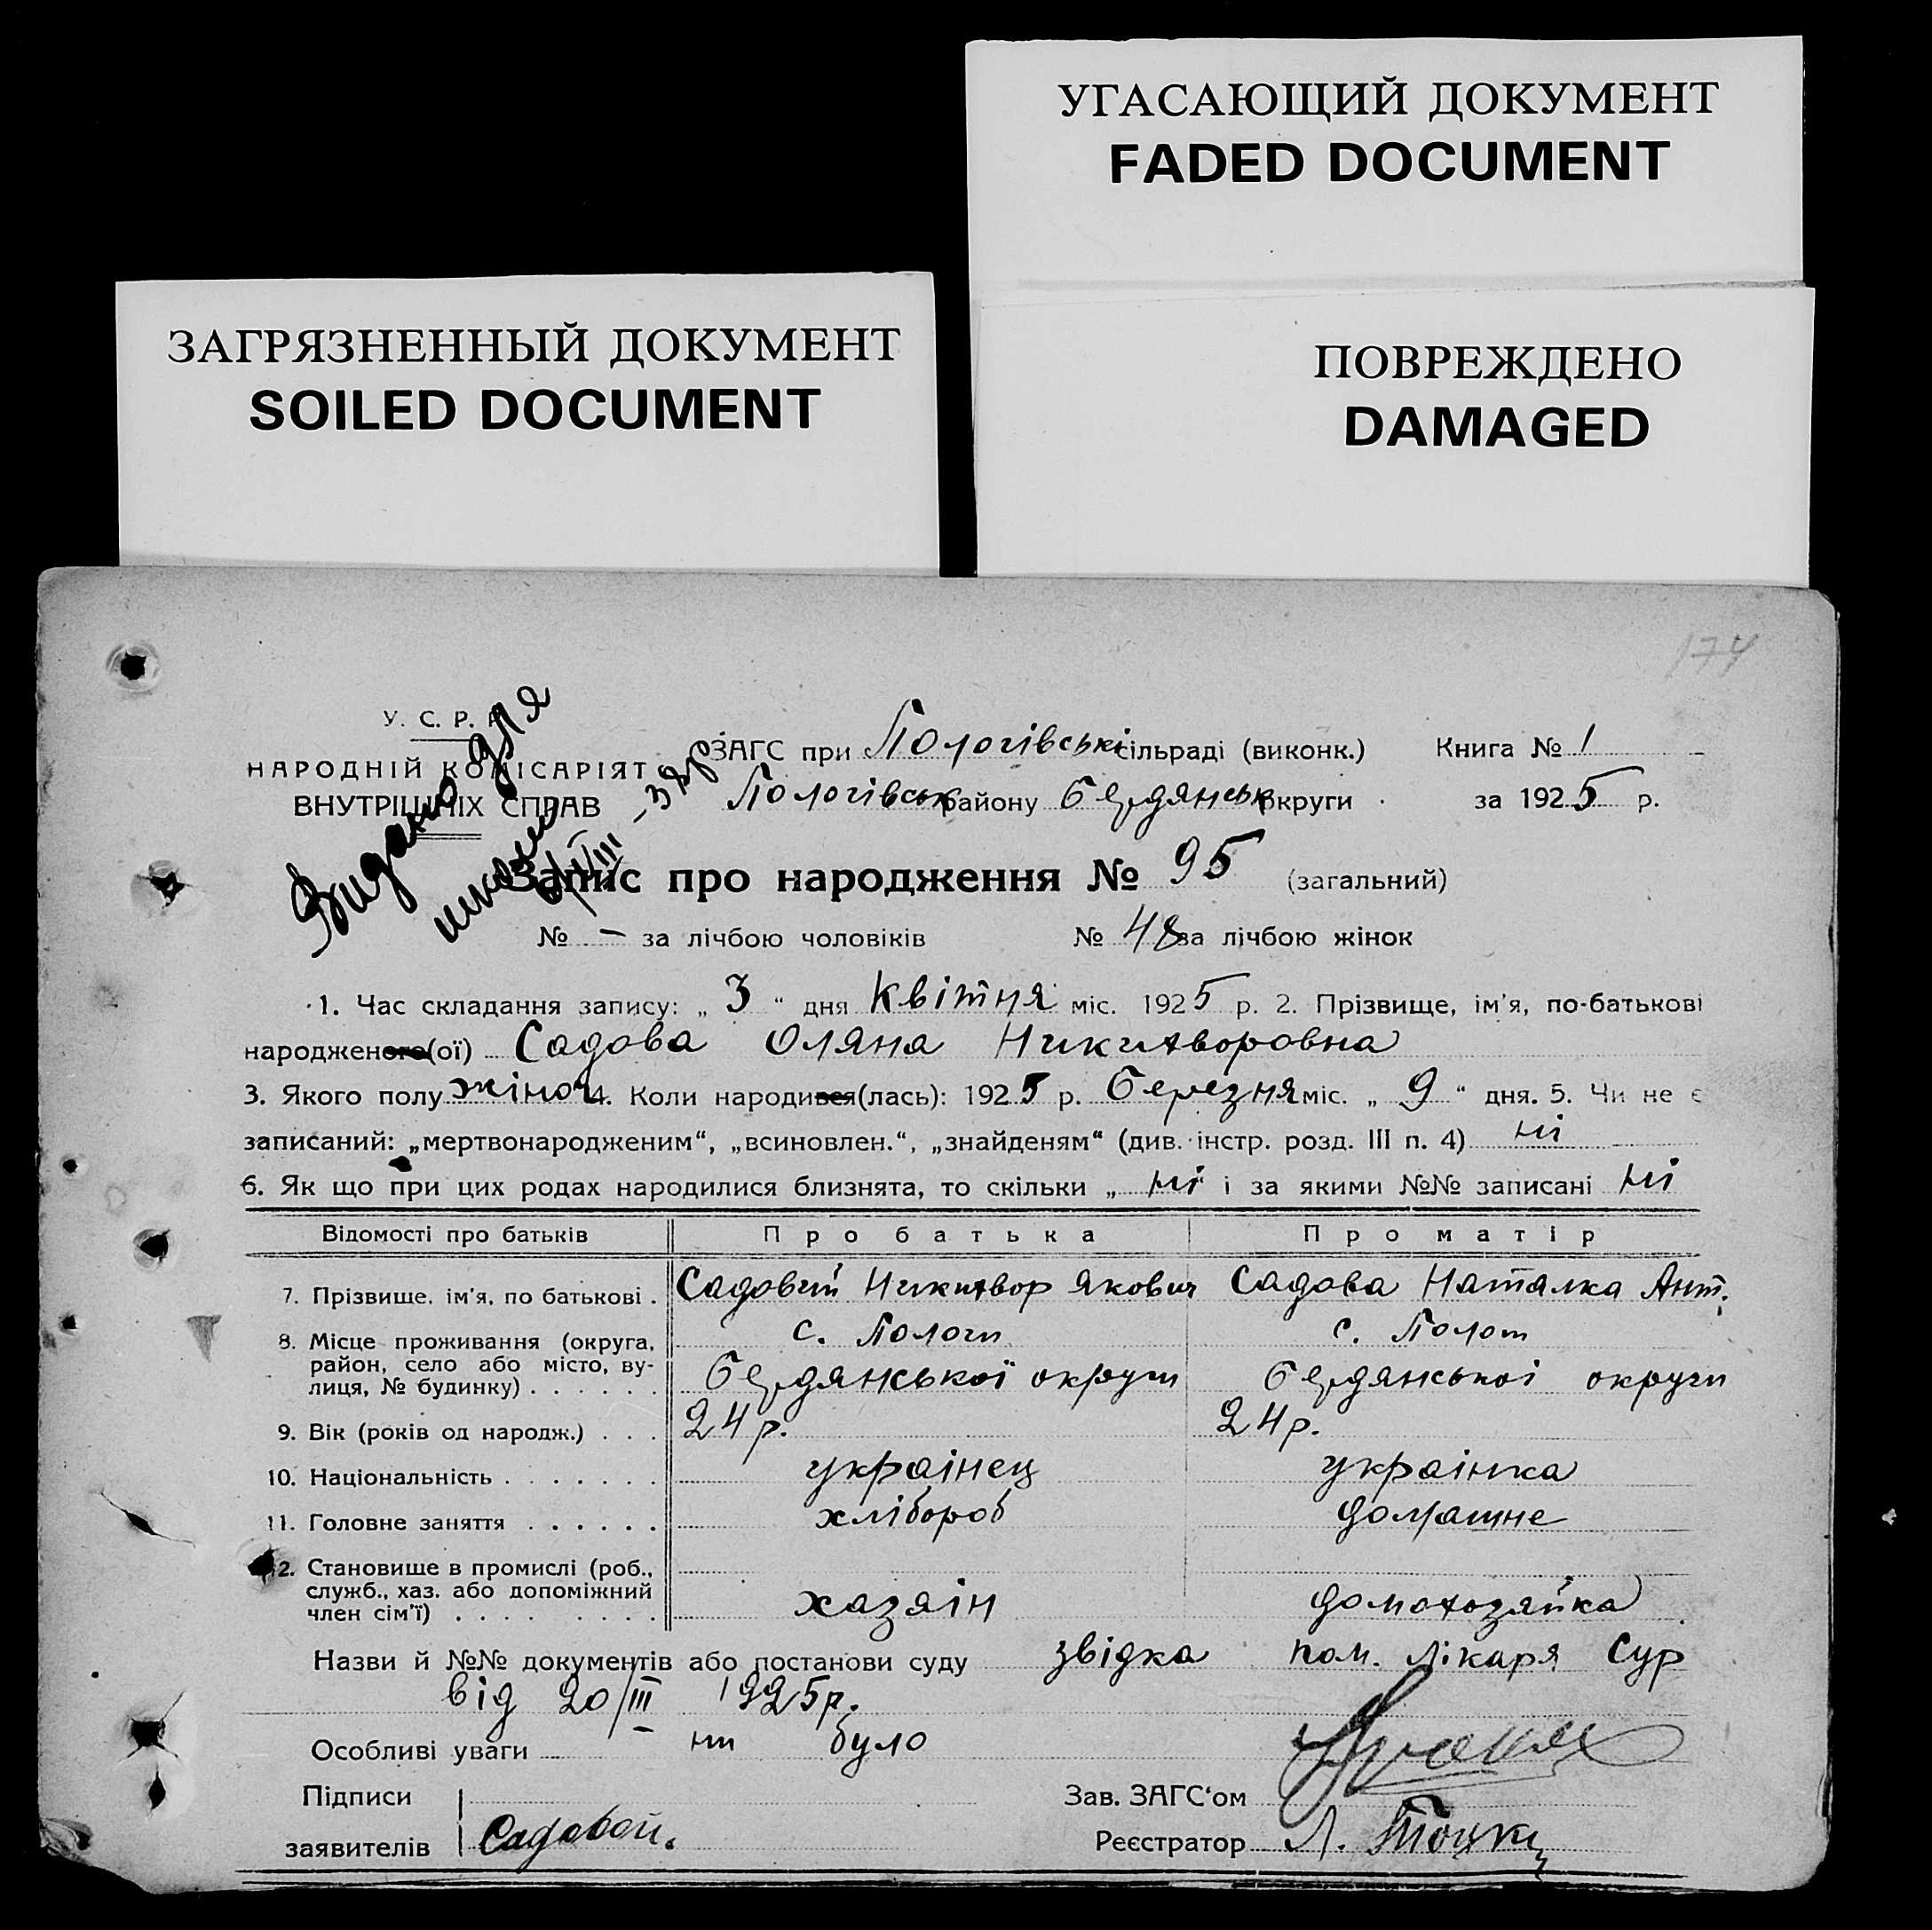 УГАСАЮЩИЙ ДОКУМЕНТ
FADED DOCUMENT
ЗАГРЯЗНЕННЫЙ ДОКУМЕНТ
SOILED DOCUMENT
ПОВРЕЖДЕНО
DAMAGED
174
У. С. Р. Р.
НАРОДНІЙ КОМІСАРІЯТ
ВНУТРІШНІХ СПРАВ
Видано для
школи
ЗАГС при Пологівські сільраді (виконк.) Книга № 1
Пологівськ району Бердянськ округи за 1925 р.
Запис про народження № 95 (загальний)
№ – за лічбою чоловіків № 48 за лічбою жінок
1. Час складання запису: „ 3 “ дня квітня міс. 1925 р. 2. Прізвище, ім'я, по-батькові
народженого(ої) Садова Оляна Никихворовна
3. Якого полу жіноч 4. Коли народився(лась): 1925 р. березня міс. „ 9 “ дня. 5. Чи не є
записаний: „мертвонародженим“, „всиновлен.“, „знайденям“ (див. інстр. розд. III п. 4) ні
6. Як що при цих родах народилися близнята, то скільки „ ні “ і за якими №№ записані ні
Відомості про батьків Про батька Про матір
7. Прізвище, ім'я, по батькові . Садовий Никихвор Якович Садова Наталка Ант.
8. Місце проживання (округа, район, село або місто, вулиця, № будинку) . . . . . . с. Пологи Бердянської округи с. Пологи Бердянської округи
9. Вік (років од народж.) . . . 24 р. 24 р.
10. Національність . . . . . . . украінец украінка
11. Головне заняття . . . . . . хлібороб домашне
12. Становище в промислі (роб., служб., хаз. або допоміжний член сім'ї) . . . . . . . . хазяін домохозяйка
Назви й №№ документів або постанови суду звідка пом. лікаря Сур
від 20/III 1925р.
Особливі уваги ни було
Підписи Зав. ЗАГС'ом
заявителів Садовой. Реєстратор Л.